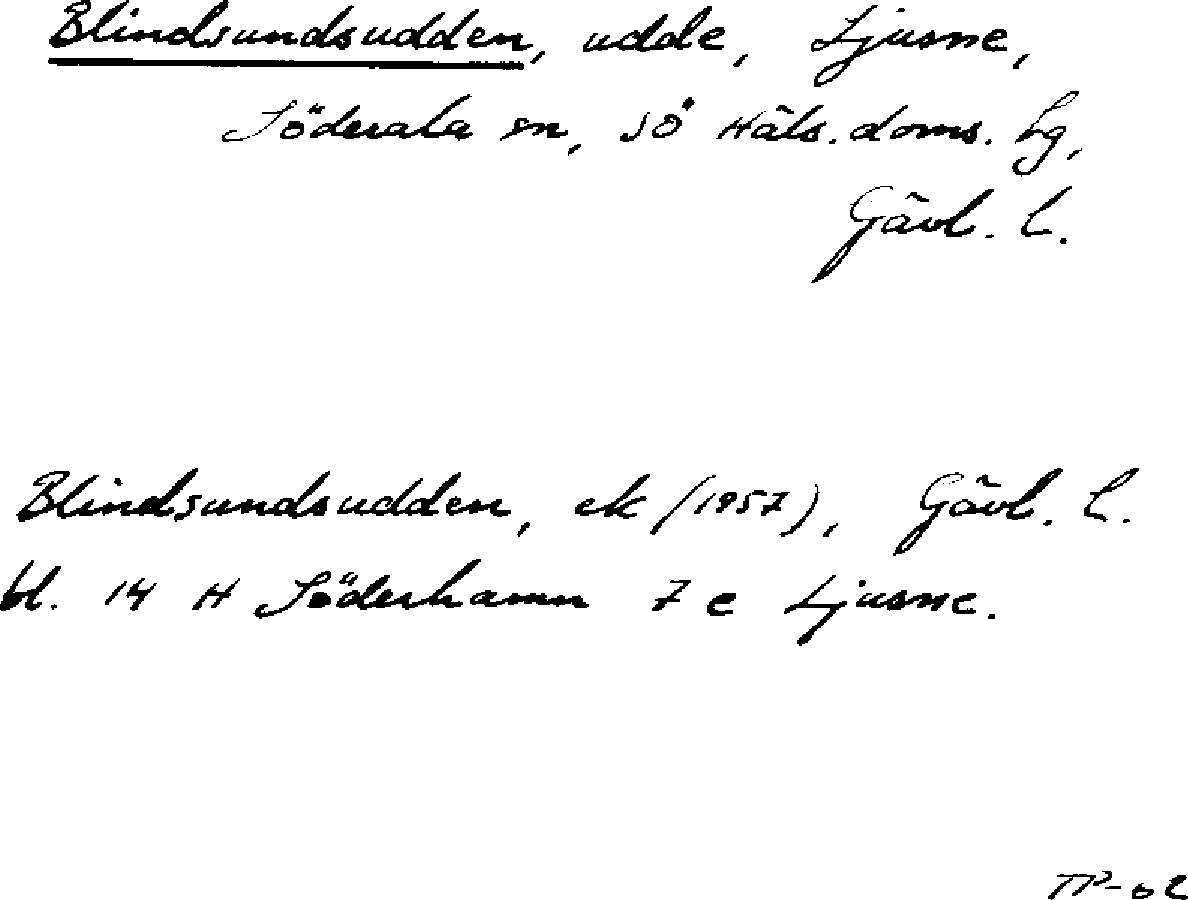 Blindsundsudden, udde, Ljusne,
Söderala sn, SÖ Häls. doms. Lg,
Gävl. L.
Blindsundsudden, ek (1957), Gävl. L.
bl. 14 H Söderhamn 7 e Ljusne.
TP-62